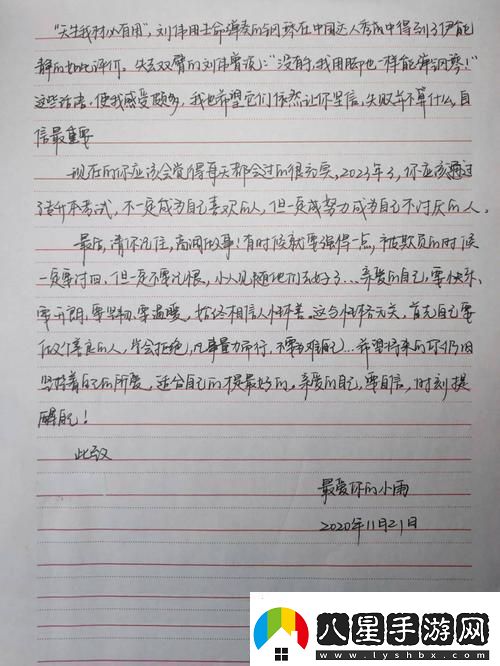 "天生我材必有用"，刘伟用生命弹奏的钢琴在中国达人秀中得到了伊能
静的如此评价。失去双臂的刘伟曾说："没有手，我用脚也一样能弹钢琴！"
这些话语，使我感受颇多，我也希望它们依然让你坚信，失败并不算什么，自
信最重要
现在的你应该会觉得每天都会过的很充实，2023年了，你应该通过
专升本考试，不一定成为自己喜欢的人，但一定要努力成为自己不讨厌的人。
最后，请你记住，高调做事！有时候就要强得一点，被欺负的时候
一定要讨回，但一定不要记恨，小人见随他们去好了…亲爱的自己，要快乐、
要开朗、要坚韧、要温暖，始终相信人性本善。这与性格无关，首先自己要
做个善良的人，学会拒绝，凡事量力而行，不要为难自己…希望将来的你仍旧
坚持着自己的所爱，适合自己的才是最好的。亲爱的自己，要自信，时刻提
醒自己！
此致
最爱你的小雨
2020年11月21日
八星手游网
www.lyshbx.com